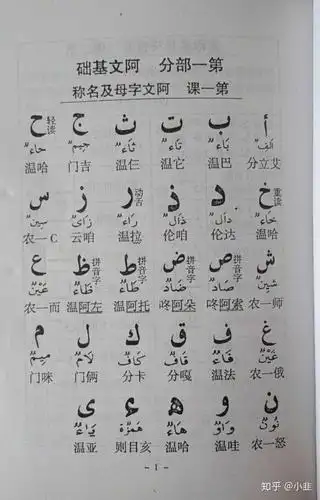 第一部分 阿文基础
第一课 阿文字母及名称
أ ب ت ث ج ح 轻读
أَلِفٌ بَاءٌ تَاءٌ ثَاءٌ جِيمٌ حَاءٌ
艾立分 巴温 它温 仨温 吉门 哈温
خ 重读 د ذ ر 动舌 ز س
خَاءٌ دَالٌ ذَالٌ رَاءٌ زَايٌ سِينٌ
哈温 达伦 咱伦 拉温 咱云 C一农
ش ص 拼音字 ض 拼音字 ط 拼音字 ظ 拼音字 ع
شِينٌ صَادٌ ضَادٌ طَاءٌ ظَاءٌ عَيْنٌ
师一农 索阿咚 朵阿咚 托阿温 左阿温 而一农
غ ف ق ك ل م
غَيْنٌ فَاءٌ قَافٌ كَافٌ لَامٌ مِيمٌ
俄一农 法温 嘎分 卡分 俩门 咪门
ن و ه ء ى
نُونٌ وَاوٌ هَاءٌ هَمْزَةٌ يَاءٌ
怒一农 哇温 哈温 亥目则 亚温
- 1 -
知乎 @小韭